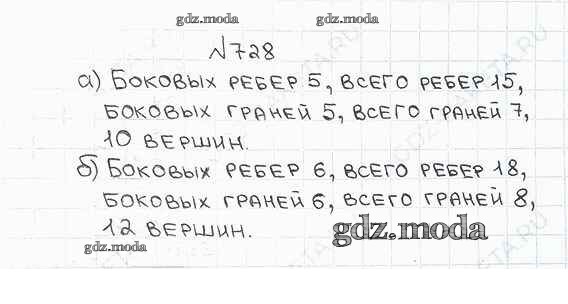 gdz.moda gdz.moda
№728
а) Боковых ребер 5, всего ребер 15,
боковых граней 5, всего граней 7,
10 вершин.
б) Боковых ребер 6, всего ребер 18,
боковых граней 6, всего граней 8,
12 вершин.
gdz.moda
gdz.moda